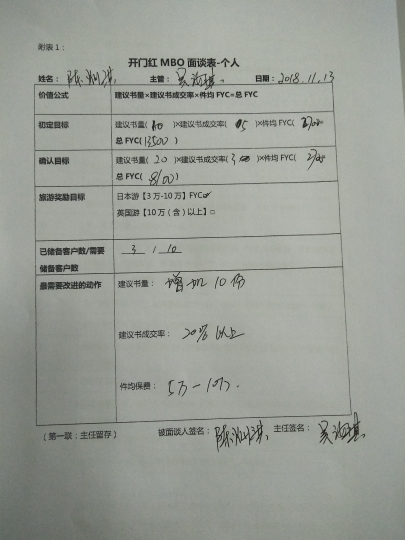 附表1：
开门红 MBO 面谈表-个人
姓名： 陈 主管： 吴 琪 日期：2018.11.13
价值公式 建议书量×建议书成交率×件均FYC=总FYC
初定目标 建议书量( 10 )×建议书成交率( )×件均FYC( 2700 )
总FYC( 13500 )
确认目标 建议书量( 20 )×建议书成交率( )×件均FYC( )
总FYC( 8100 )
旅游奖励目标 日本游【3万-10万】FYC
英国游【10万（含）以上】□
已储备客户数/需要 3 / 10
储备客户数
最需要改进的动作 建议书量： 增加10份
建议书成交率： 20% 以上
件均保费： 5万—10万.
（第一联：主任留存） 被面谈人签名： 陈 主任签名： 吴 琪